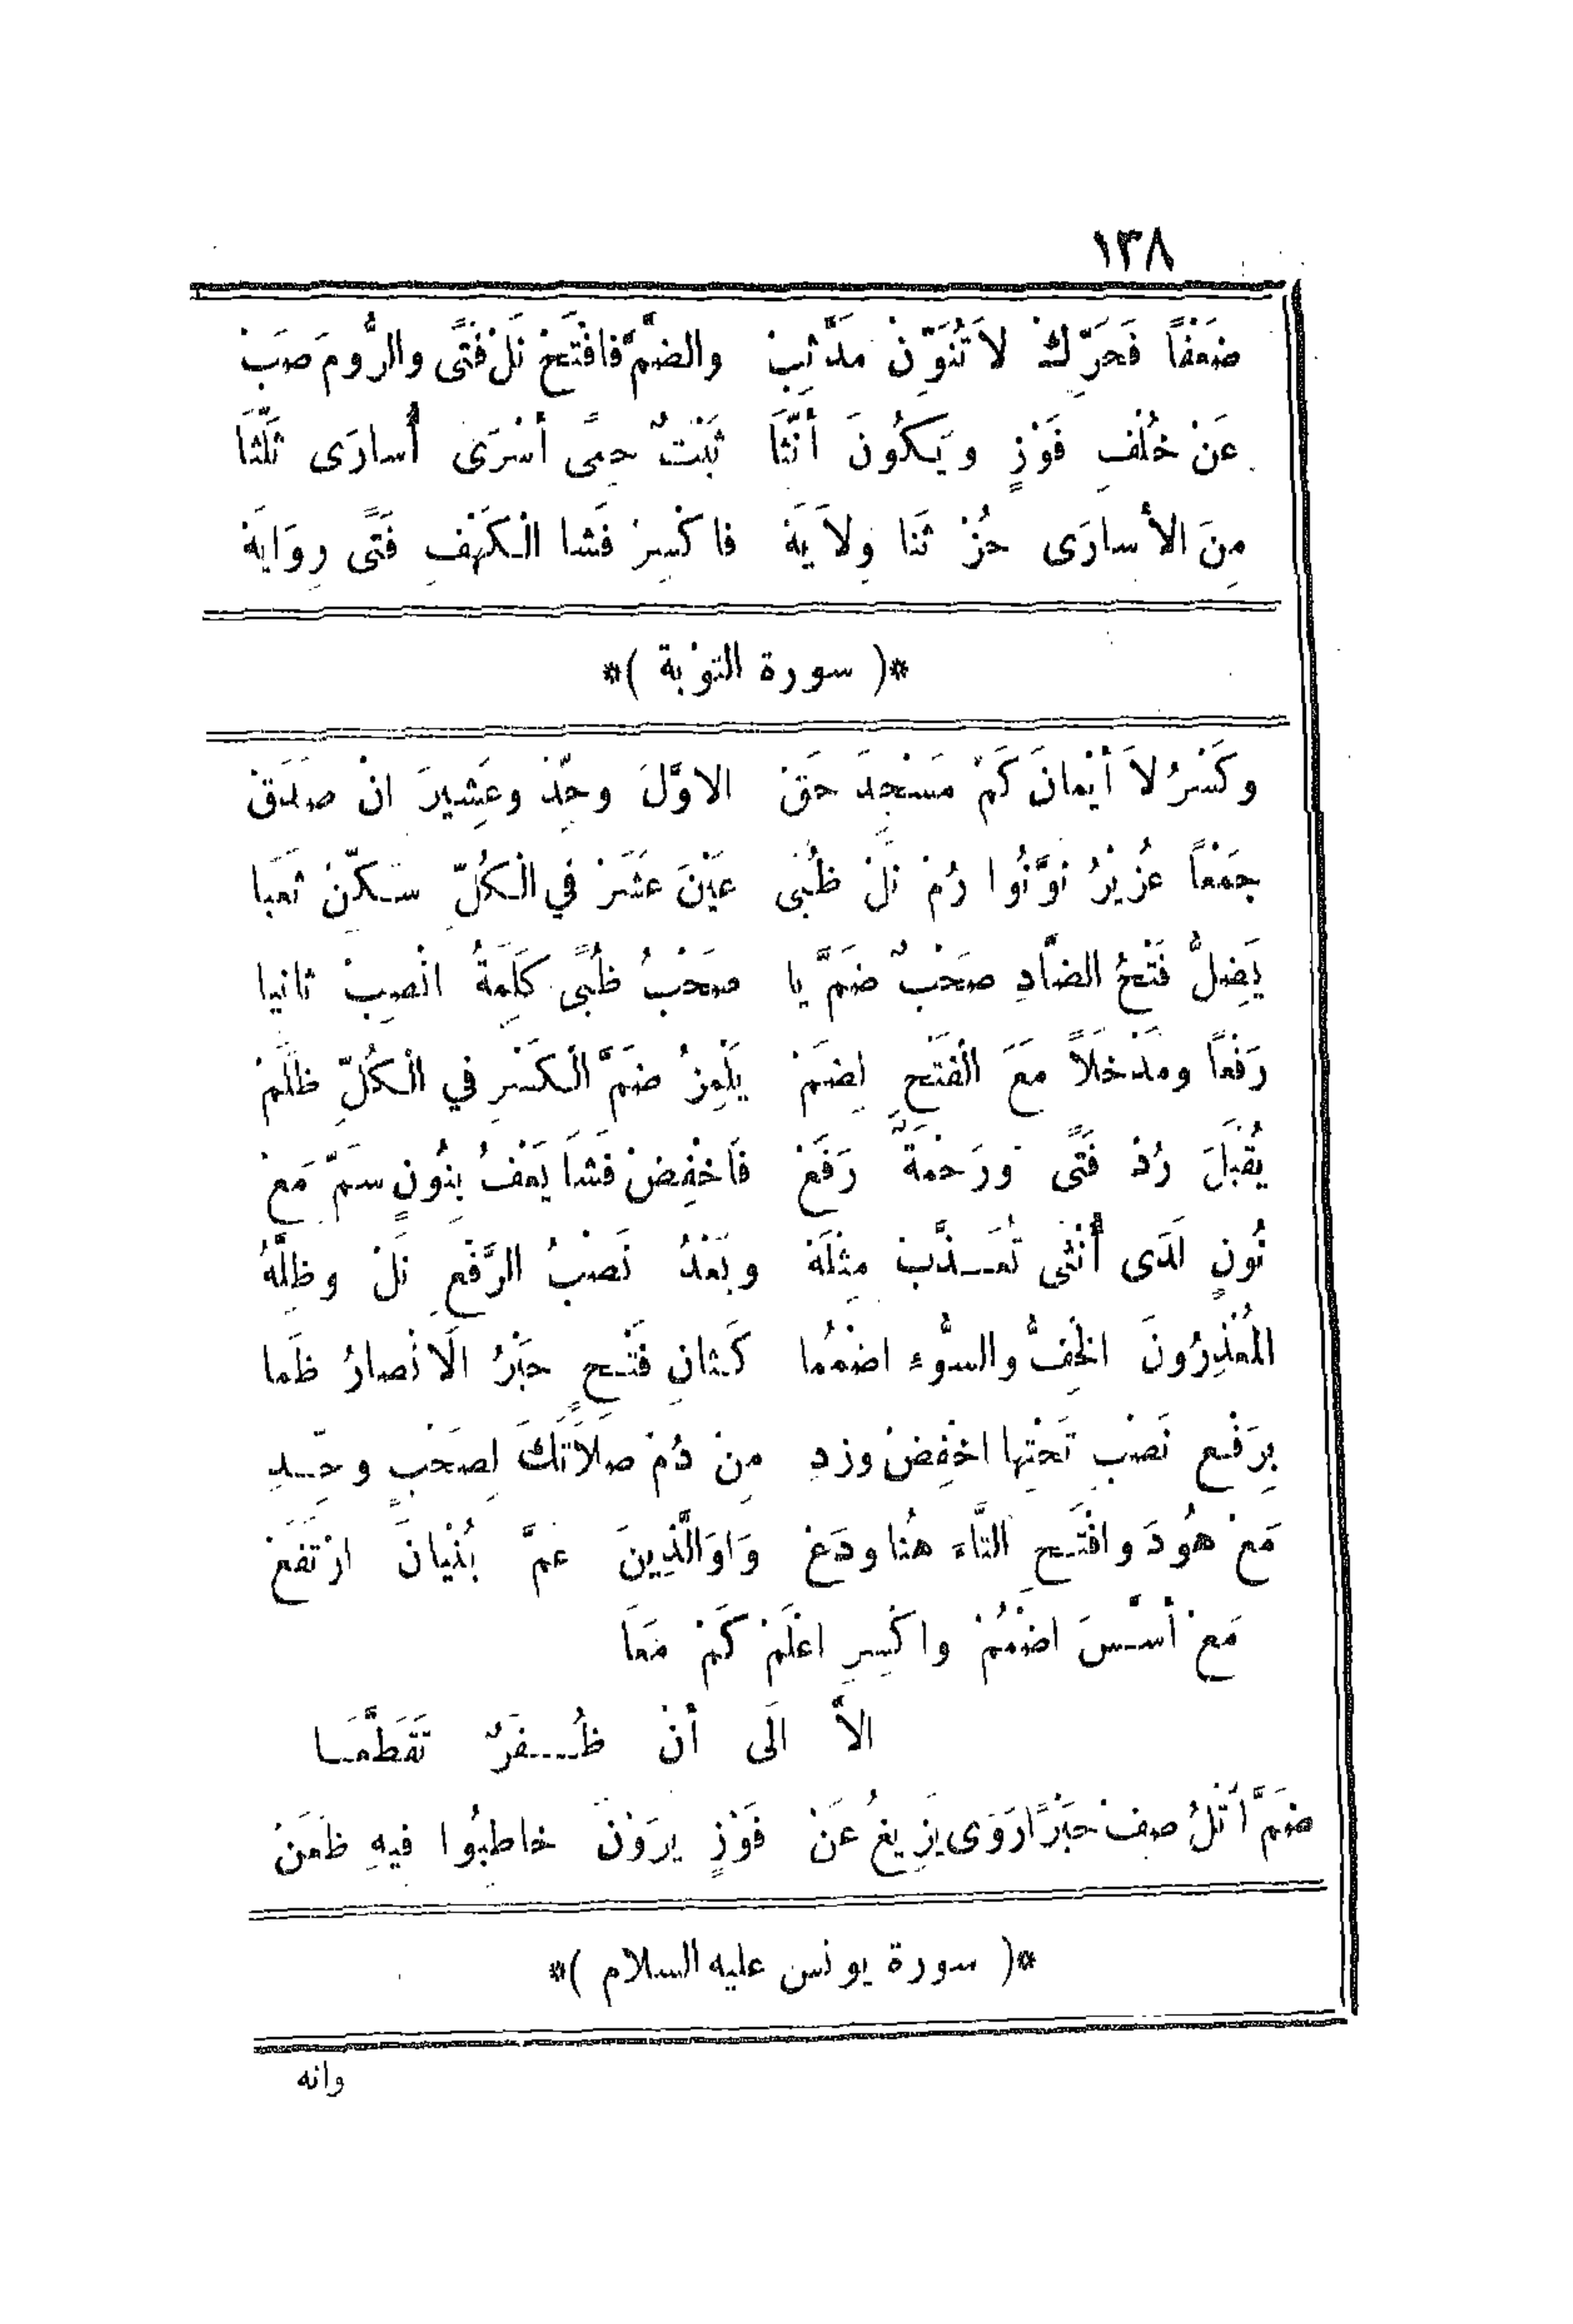 ١٣٨
ضَعْفاً فَحَرِّكْ لاَ تُنَوِّنْ مُدَّ ثِبْ والضَّمَّ فافْتَحْ نَلْ فَتًى والرُّومَ صَبْ
عَنْ خُلْفِ فَوْزٍ ويَكُونَ أنِّثَا ثَبْتٌ حِمًى أسْرَى أُسارَى ثَلَّثَا
مِنَ الأسارَى حُزْ ثَنَا وِلاَيَةَ فاكْسِرْ فَشا الْكَهْفِ فَتًى رِوَايَةْ
*( سورة التوْبة )*
وكَسْرُ لاَ أيْمانَ كَمْ مَسْجِدَ حَقْ الاوَّلَ وحِّدْ وعَشِيرَ انْ صَدَقْ
جَمْعاً عُزَيْرُ نَوِّنُوا رُمْ نَلْ ظُبَى عَيْنَ عَشَرْ في الْكُلِّ سَكِّنْ ثَغَبا
يَضِلُّ فَتْحُ الضَّادِ صَحْبٌ ضَمَّ يا صَحْبُ ظُبًى كَلِمَةُ انْصِبْ ثانيا
رَفْعاً ومَدْخَلاً مَعَ الْفَتْحِ لِضَمْ يَلْمِزُ ضَمَّ الْكَسْرِ في الْكُلِّ ظَلَمْ
يُقْبَلَ رُدْ فَتًى ورَحْمَةٌ رَفَعْ فَاخْفِضْ فَشَا يَعْفُ بِنُونٍ سَمِّ مَعْ
نُونٍ لَدَى أُنْثى تُعَـذَّبْ مِثْلَهْ وبَعْدُ نَصْبُ الرَّفْعِ نَلْ وظِلُّهُ
المُعْذِرُونَ الْخِفُّ والسُّوْءِ اضْمُما كَثانِ فَتْحٍ حَبْرُ الَانْصارُ ظَما
بِرَفْعِ نَصْبِ تَحْتِها اخْفِضْ وزدِ مِنْ دُمْ صَلاَتَكَ لِصَحْبٍ وحِّـدِ
مَعْ هُودَ وافْتَحِ التَّاءَ هُنا ودَعْ وَاوَ الَّذِينَ عَمَّ بُنْيانَ ارْتَفَعْ
مَعْ أسِّسَ اضْمُمْ واكْسِرِ اعْلَمْ كَمْ مَعَا
الاَّ الَى أنْ ظُــفُرٌ تَقَطَّعَــا
ضَمَّ اتْلُ صِفْ حَبْرًا رَوَى يَزِيغُ عَنْ فَوْزٍ يرَوْنَ خاطِبُوا فيهِ ظَعَنْ
*( سورة يونس عليه السلام )*
وانه